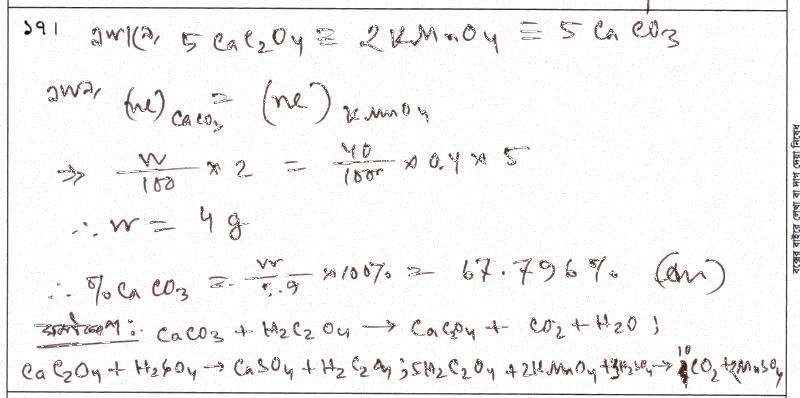 ১৭। এখানে, 5 CaC2O4 ≡ 2KMnO4 ≡ 5 CaCO3
এখন, (ne)CaCO3 = (ne)KMnO4
⇒ W/100 × 2 = 40/1000 × 0.4 × 5
∴ W = 4 g
∴ % CaCO3 = W/5.9 × 100% = 67.796% (Ans)
CaCO3 + H2C2O4 → CaC2O4 + CO2 + H2O ;
CaC2O4 + H2SO4 → CaSO4 + H2C2O4 ; 5H2C2O4 + 2KMnO4 + 3H2SO4 → 10CO2 + 2MnSO4
বক্সের বাইরে লেখা বা দাগ দেয়া নিষেধ